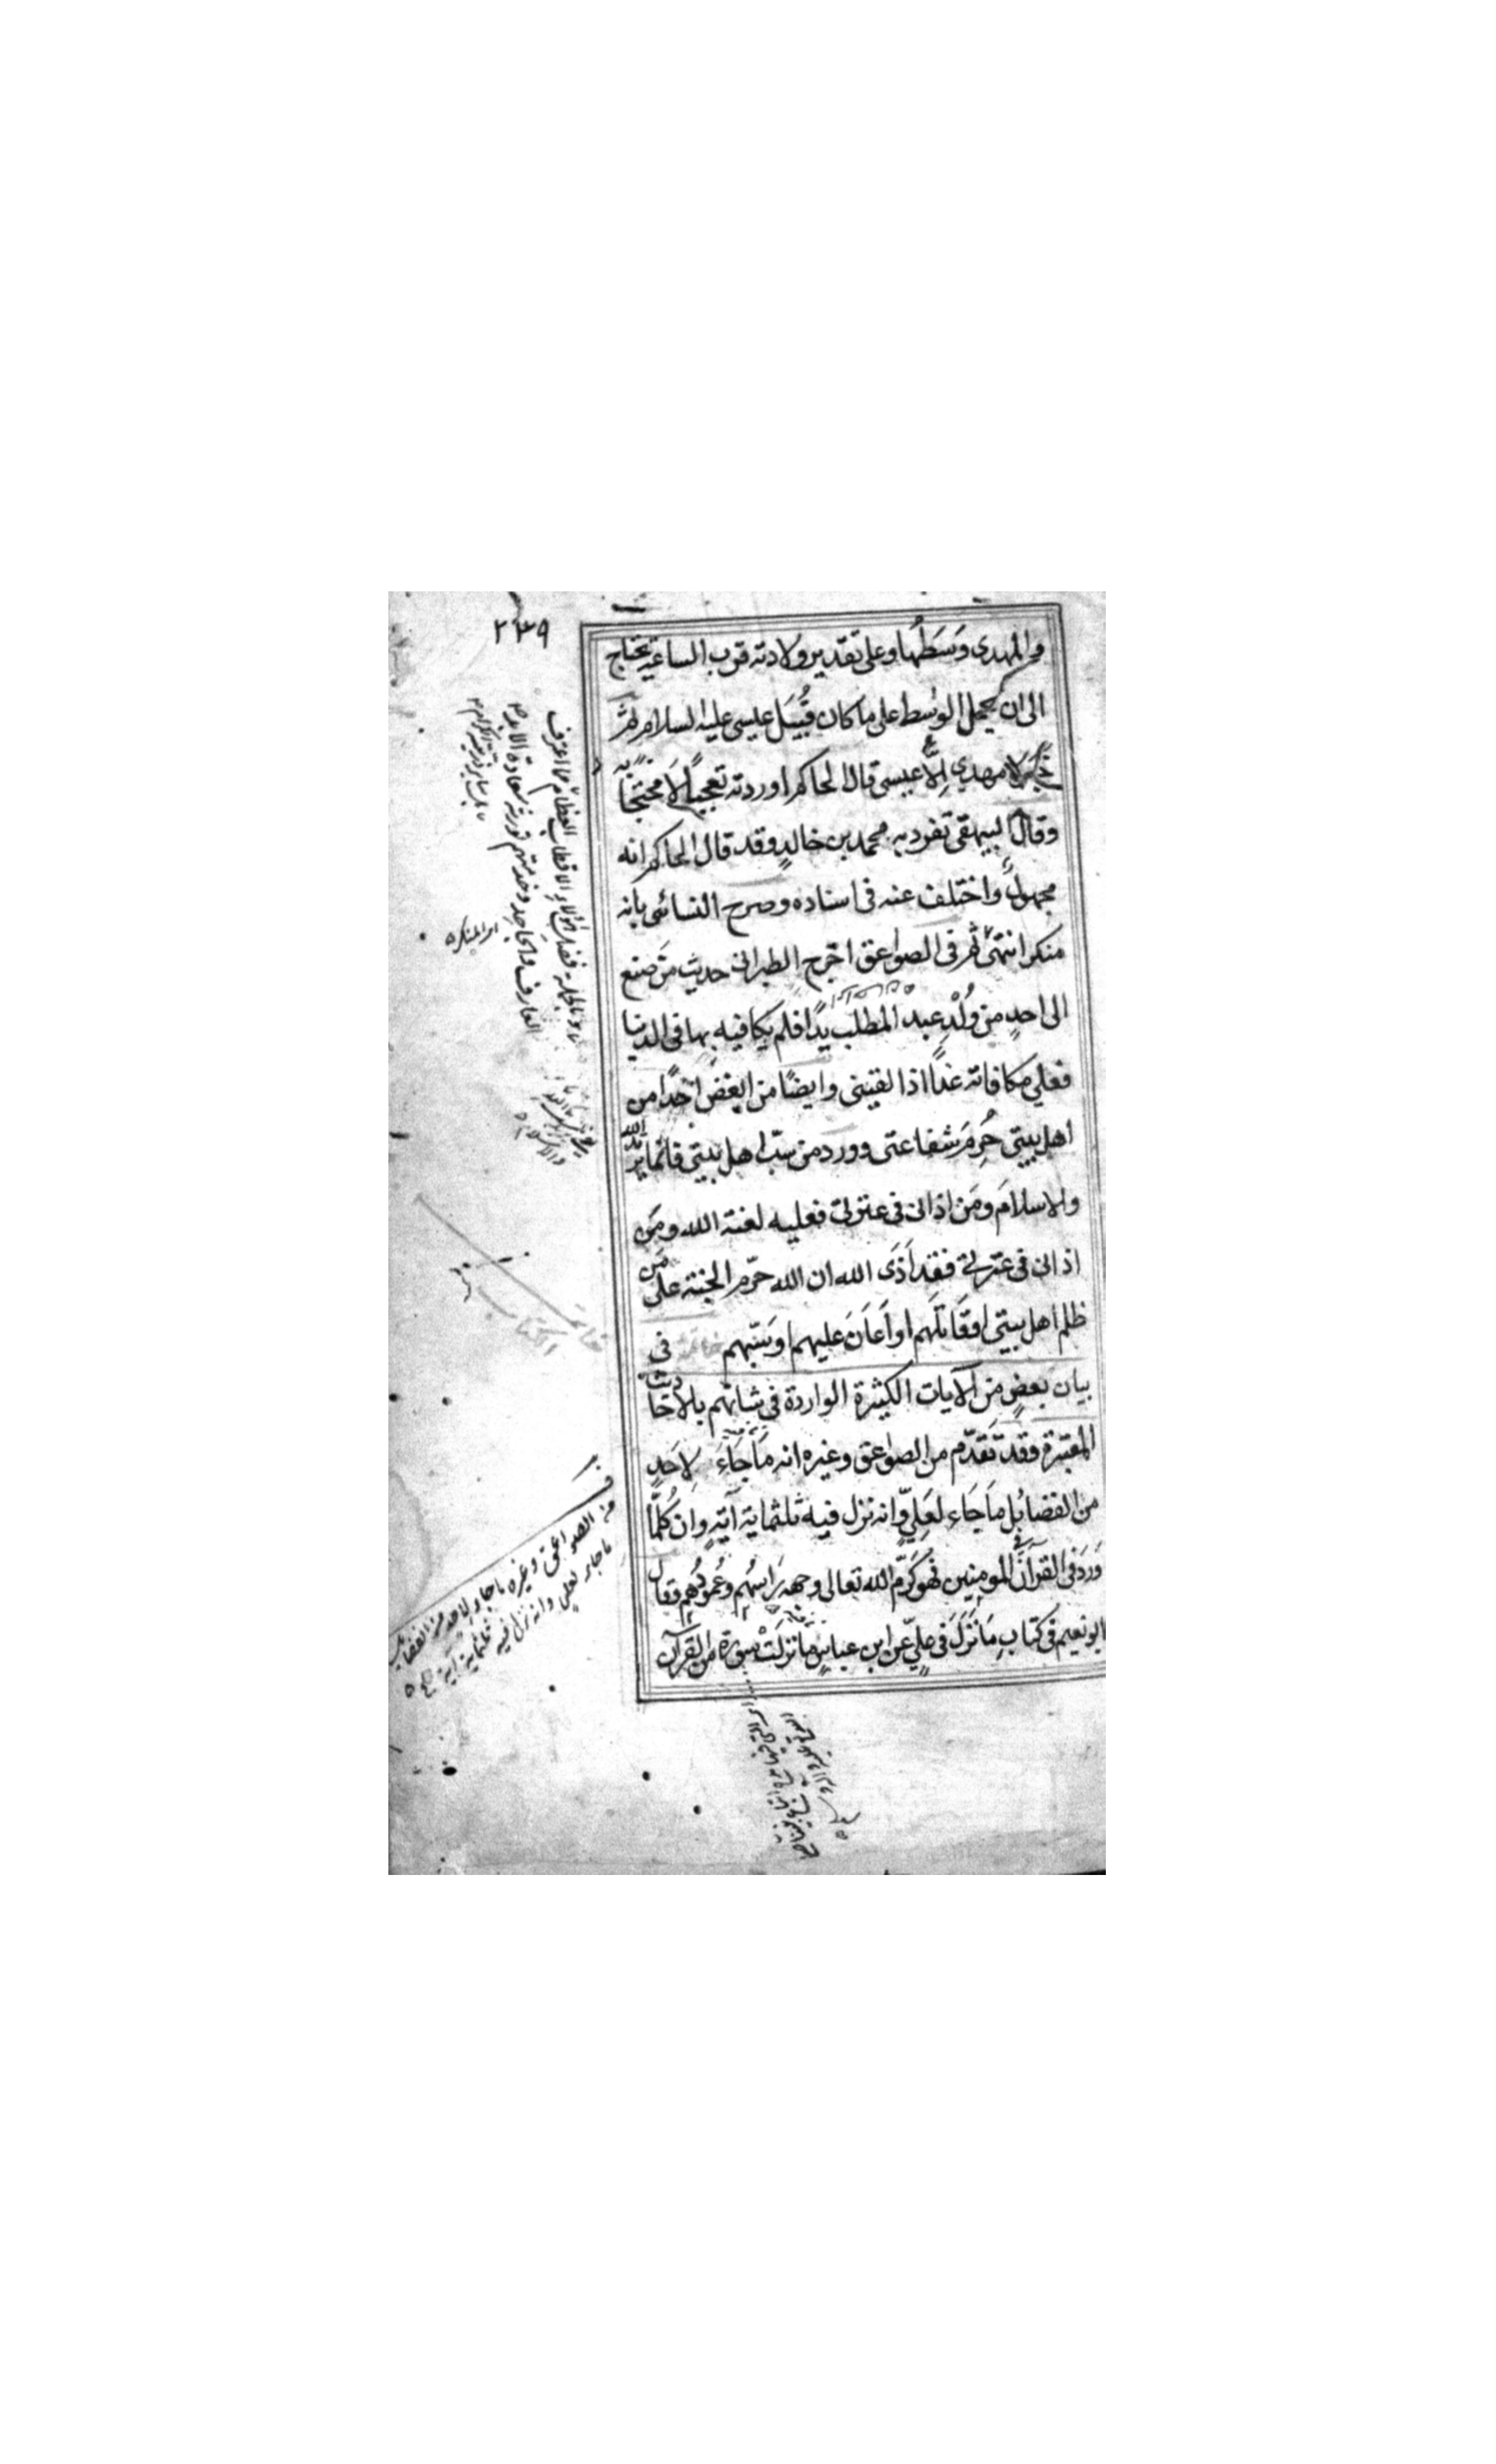 ٢٣٩
والمهدى وَسَطُها وعلى تقدير ولادته قرب الساعة يحتاج
الى ان يحمل الوسط على ما كان قُبَيل عيسى عليه السلام ثم
خبر لا مهدي اِلّا عيسى قال الحاكم اوردته تعجبًا لا محتجًا به
وقال البيهقى تفرد به محمد بن خالدٍ وقد قال الحاكم انه
مجهولٌ واختلف عنه فى اسناده وصرح النسائى بانه
منكر انتهى ثم فى الصواعق اخرج الطبرانى حديث مَن صنع
الى احدٍ من وُلْدِ عبد المطلب يدًا فلم يكافيه بها فى الدنيا
فعلي مكافاته غدًا اذا لقينى وايضًا من ابغض احدًا من
اهل بيتى حُرِمَ شفاعتى وورد من سبّ اهل بيتى فانما يرتد الله
والاسلامَ ومَن اذانى فى عترتى فعليه لعنة الله ومَن
اذانى فى عترتى فقد اَذَى الله ان الله حرّم الجنة على مَن
ظلم اهل بيتى او قَاتَلَهم او اَعَانَ عليهم او سَبّهم خاتمة فى
بيان بعضٍ من الآيات الكثيرة الواردة فى شانهم بالاحاديث
المعتبرة وقد تَقدّم من الصواعق وغيره انه مَا جَاءَ لاحَدٍ
من الفضائل مَا جَاء لعَلِيٍّ وانه نزل فيه ثلثماية آيةٍ وان كُلّما
وَرَدَ فى القرآن فى المومنين فهو كَرّم الله تعالى وجهه رَاسُهم وعَمُودُهم وقال
ابو نعيم فى كتابِ مَا نَزَلَ فى عليٍّ عن ابن عباسٍ ما نزلَتْ سورة من القرآن
وبالجملة فضل هؤلاء الاقطاب العظام مما اعترف
العارف والجاحد وخدمتهم تورث سعادة الابد
من الصواعق وغيره ما جاء لاحد من الفضايل
ما جاء لعلى وانه نزل فيه ثلثماية آية